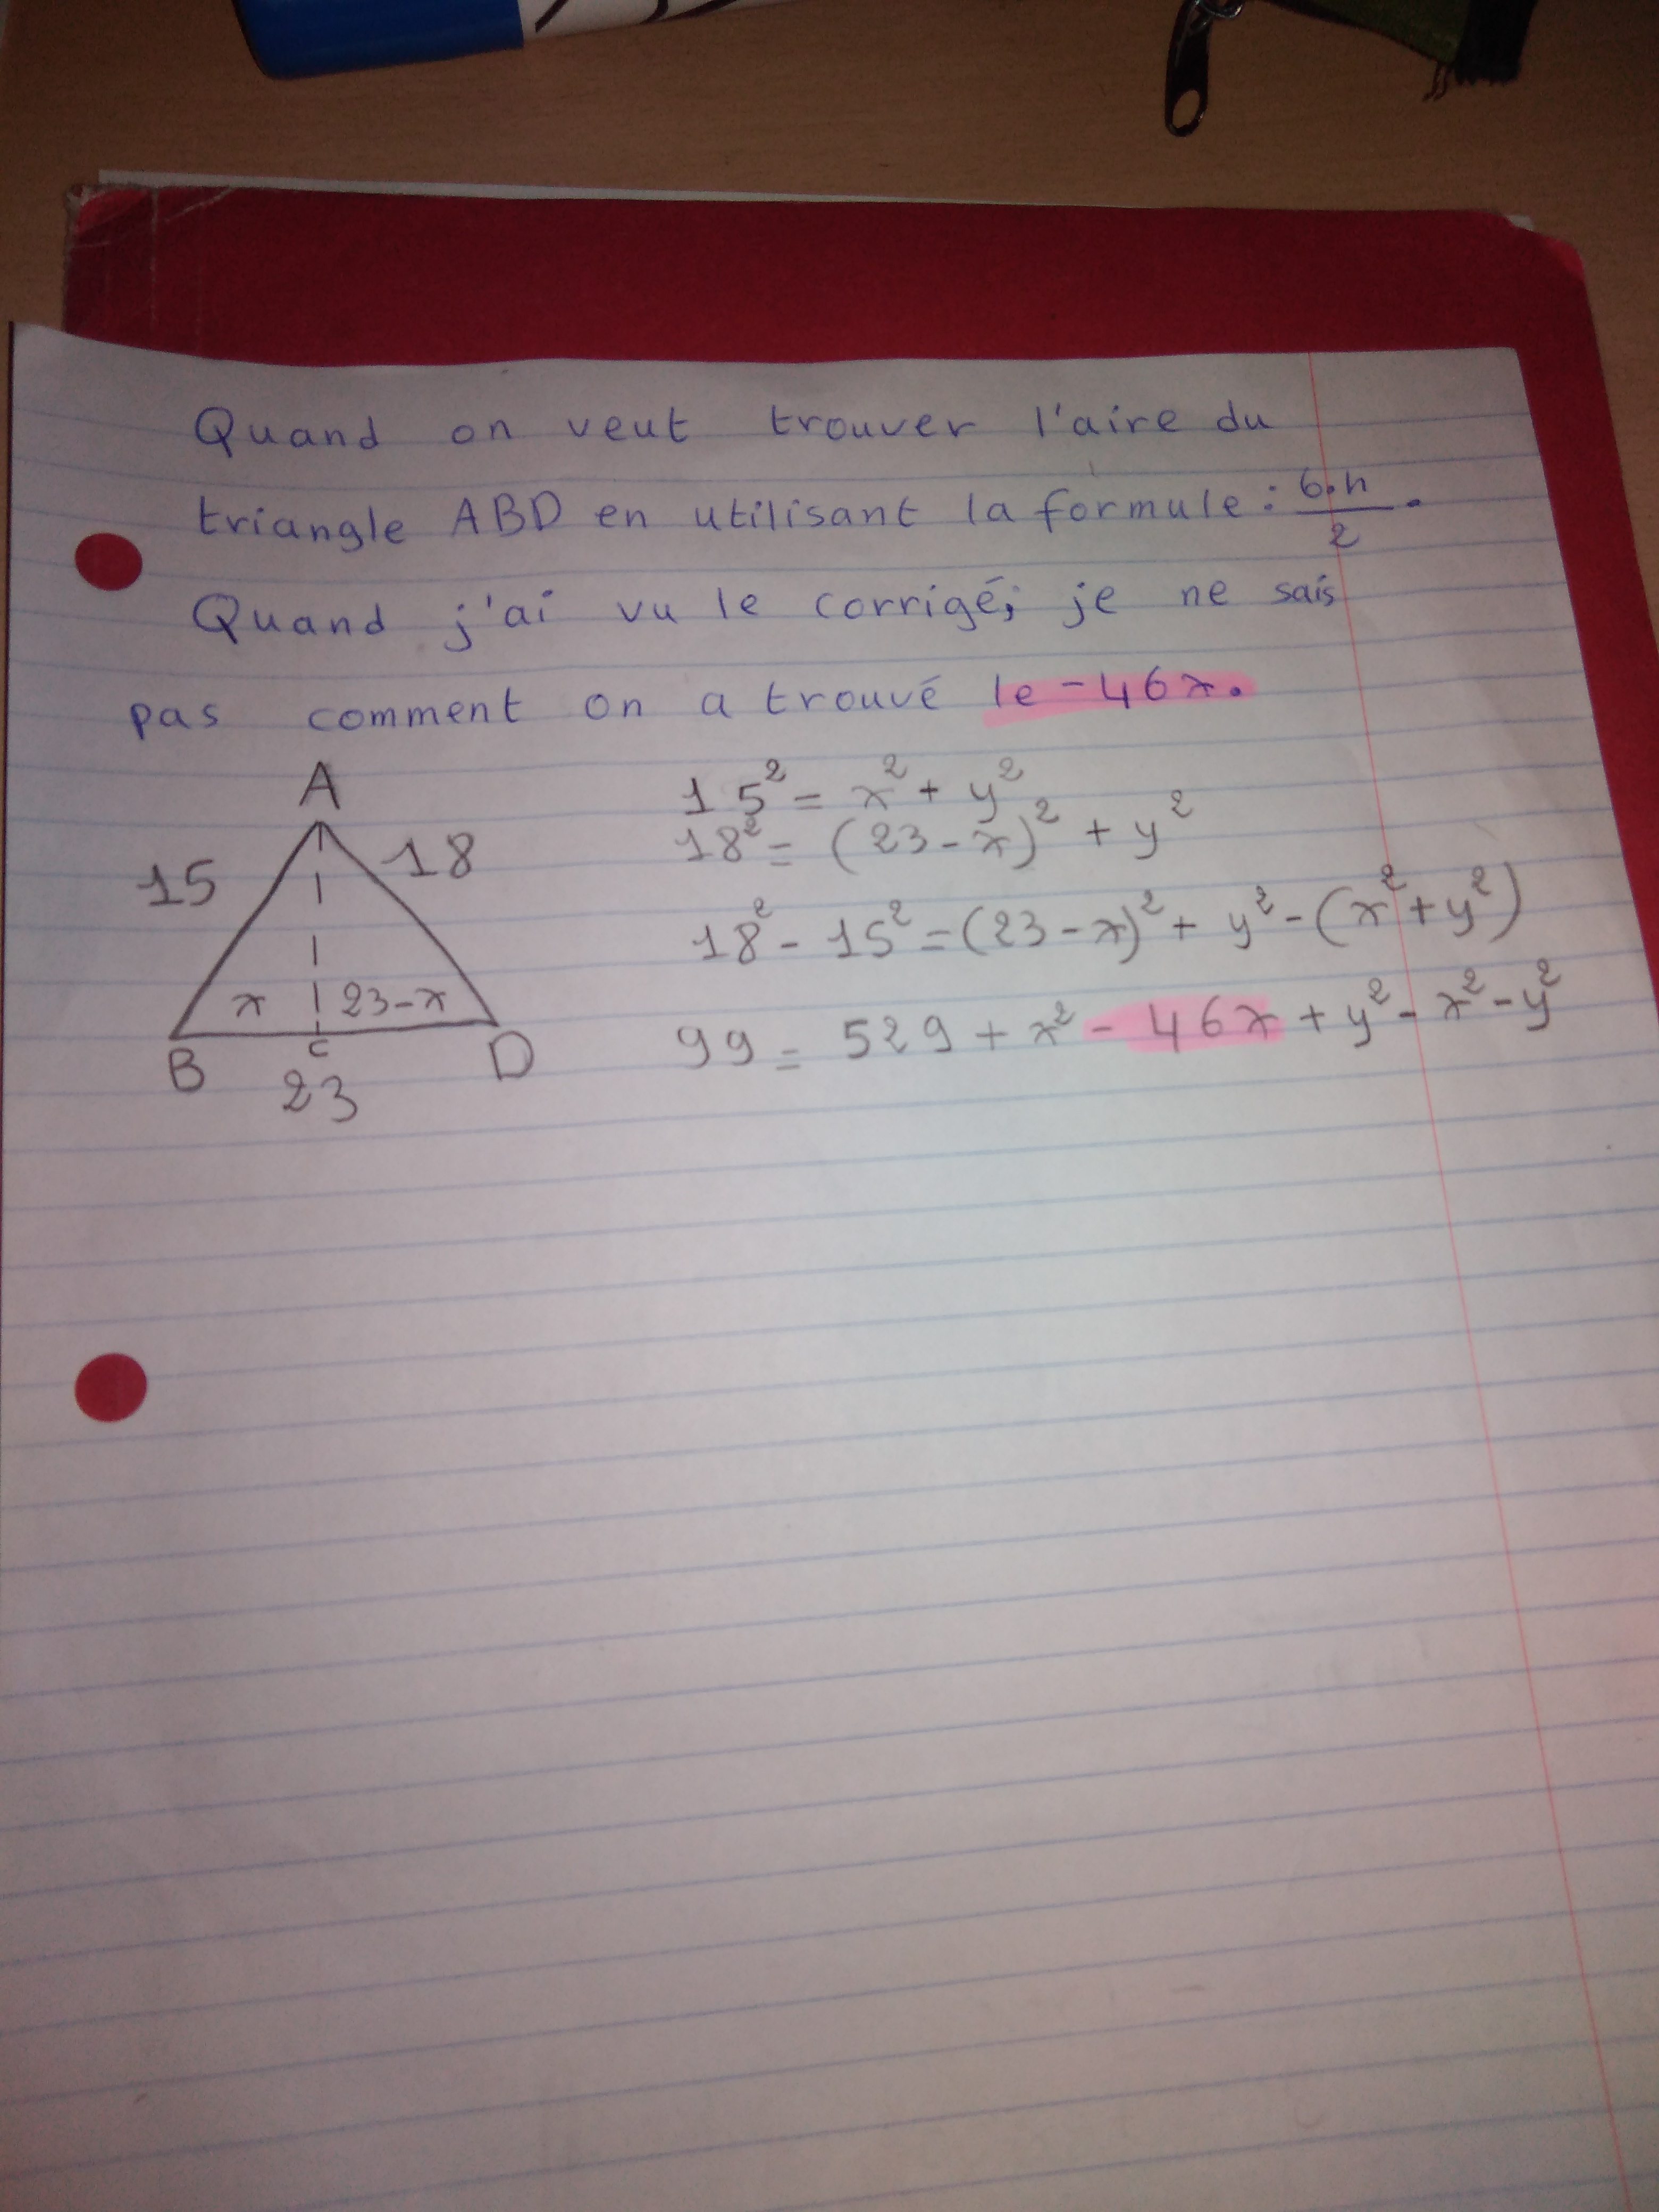 Quand on veut trouver l'aire du
triangle ABD en utilisant la formule : b.h/2.
Quand j'ai vu le corrigé, je ne sais
pas comment on a trouvé le -46x.
A
15
18
x
23-x
B
c
D
23
15² = x² + y²
18² = (23-x)² + y²
18² - 15² = (23-x)² + y² - (x² + y²)
99 = 529 + x² - 46x + y² - x² - y²